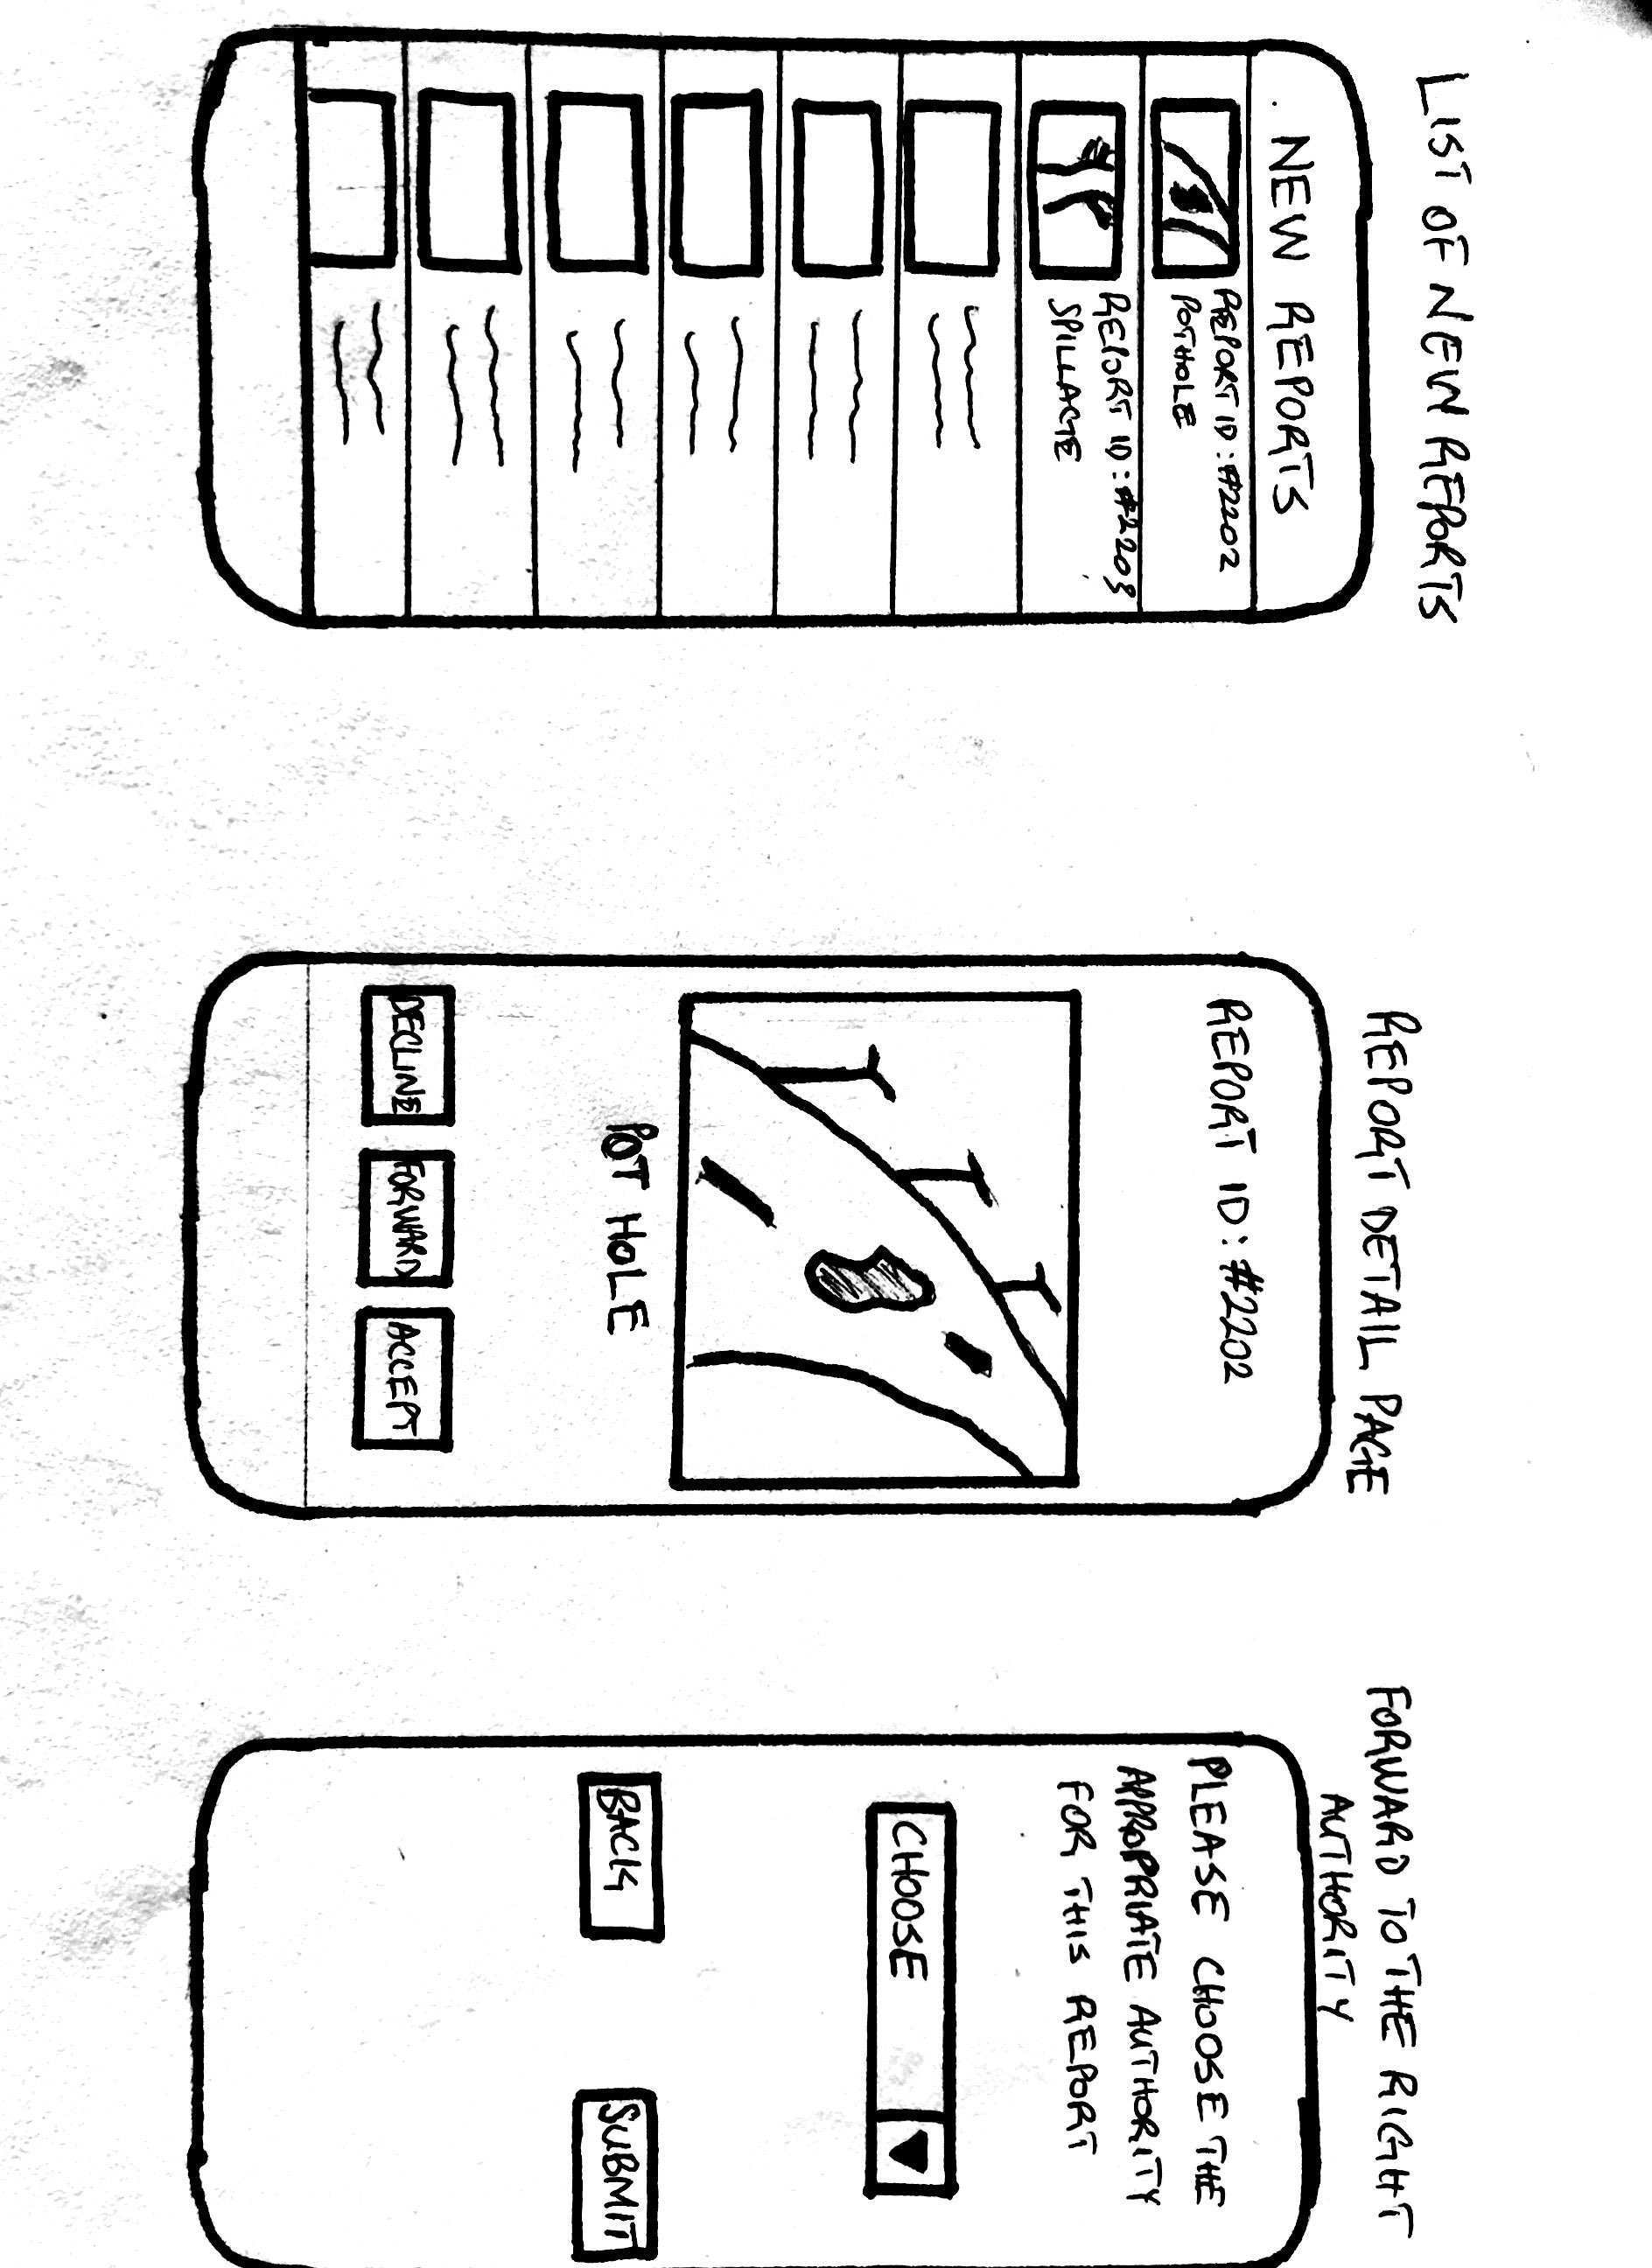 LIST OF NEW REPORTS
NEW REPORTS
REPORT ID: #2202
POTHOLE
REPORT ID: #2203
SPILLAGE
REPORT DETAIL PAGE
REPORT ID: #2202
POT HOLE
DECLINE
FORWARD
ACCEPT
FORWARD TO THE RIGHT
AUTHORITY
PLEASE CHOOSE THE
APPROPRIATE AUTHORITY
FOR THIS REPORT
CHOOSE
BACK
SUBMIT